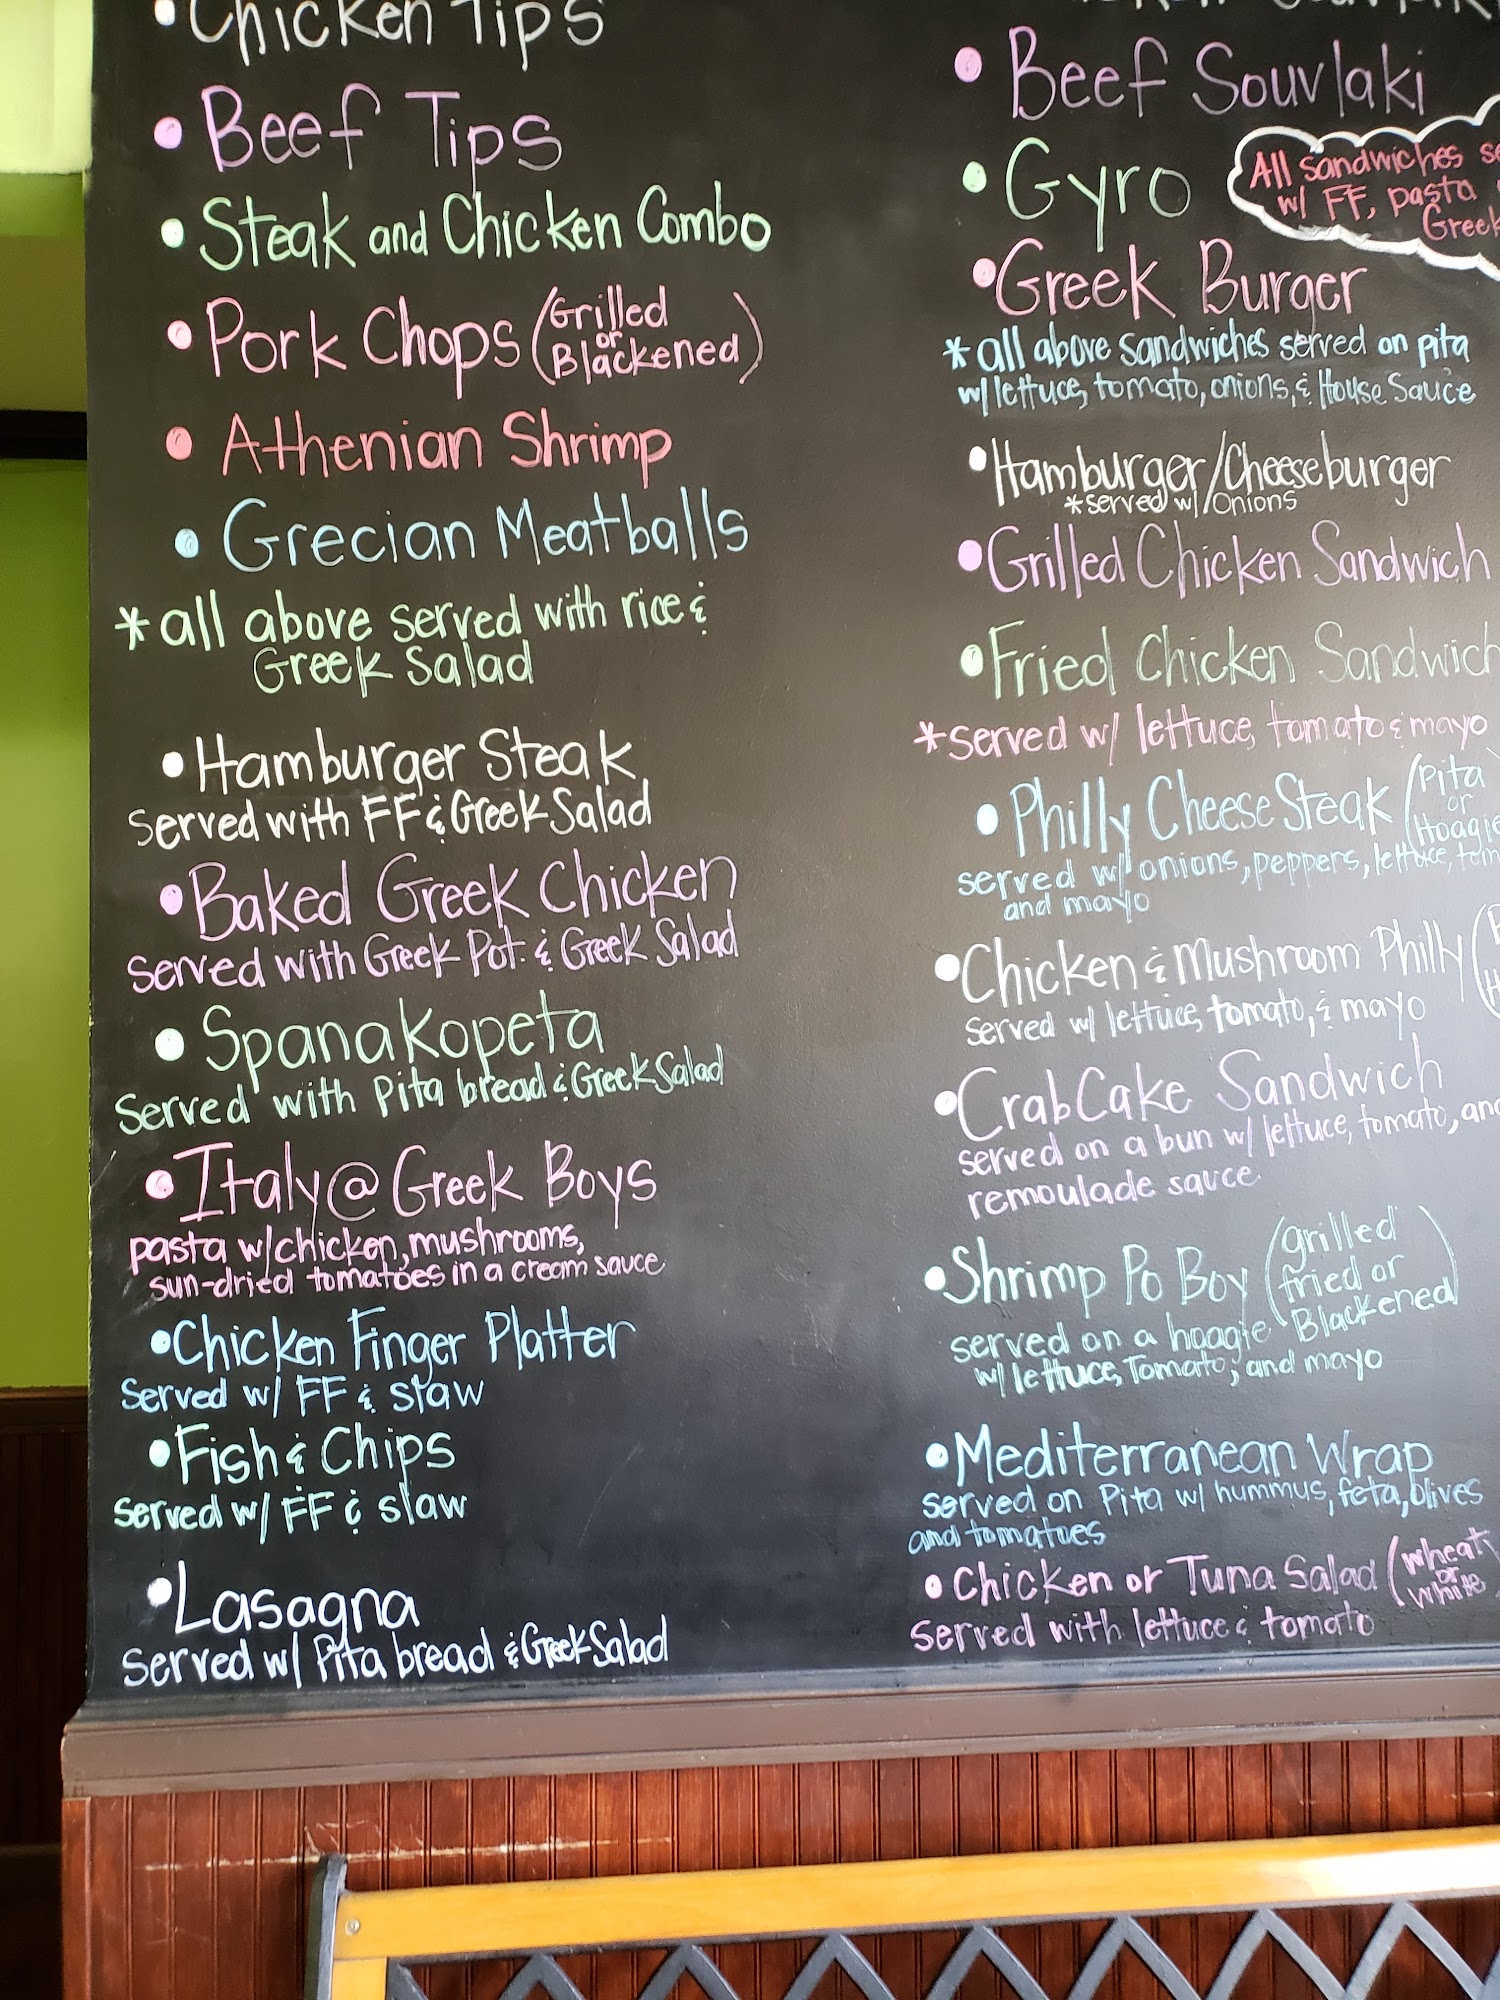 •Chicken Tips
• Beef Tips
• Steak and Chicken Combo
• Pork Chops (Grilled
or
Blackened)
• Athenian Shrimp
• Grecian Meatballs
*all above served with rice &
Greek Salad
• Hamburger Steak
Served with FF & Greek Salad
• Baked Greek Chicken
Served with Greek Pot. & Greek Salad
• Spanakopeta
Served with Pita bread & Greek Salad
• Italy @ Greek Boys
pasta w/chicken, mushrooms,
sun-dried tomatoes in a cream sauce
•Chicken Finger Platter
Served w/ FF & slaw
•Fish & Chips
Served w/ FF & slaw
•Lasagna
Served w/ Pita bread & Greek Salad
• Beef Souvlaki
• Gyro
All sandwiches
w/ FF, pasta
Greek
•Greek Burger
*all above sandwiches served on pita
w/lettuce, tomato, onions, & House Sauce
•Hamburger/Cheeseburger
*served w/ Onions
•Grilled Chicken Sandwich
•Fried Chicken Sandwich
*served w/ lettuce, tomato & mayo
• Philly CheeseSteak (Pita
or
Hoagie
served w/ onions, peppers, lettuce,
and mayo
•Chicken & Mushroom Philly
served w/ lettuce, tomato, & mayo
•CrabCake Sandwich
served on a bun w/ lettuce, tomato, and
remoulade sauce
•Shrimp Po Boy (grilled
fried or
Blackened)
served on a hoagie
w/ lettuce, Tomato, and mayo
•Mediterranean Wrap
served on Pita w/ hummus, feta, olives
and tomatoes
• Chicken or Tuna Salad (wheat
or
white)
served with lettuce & tomato